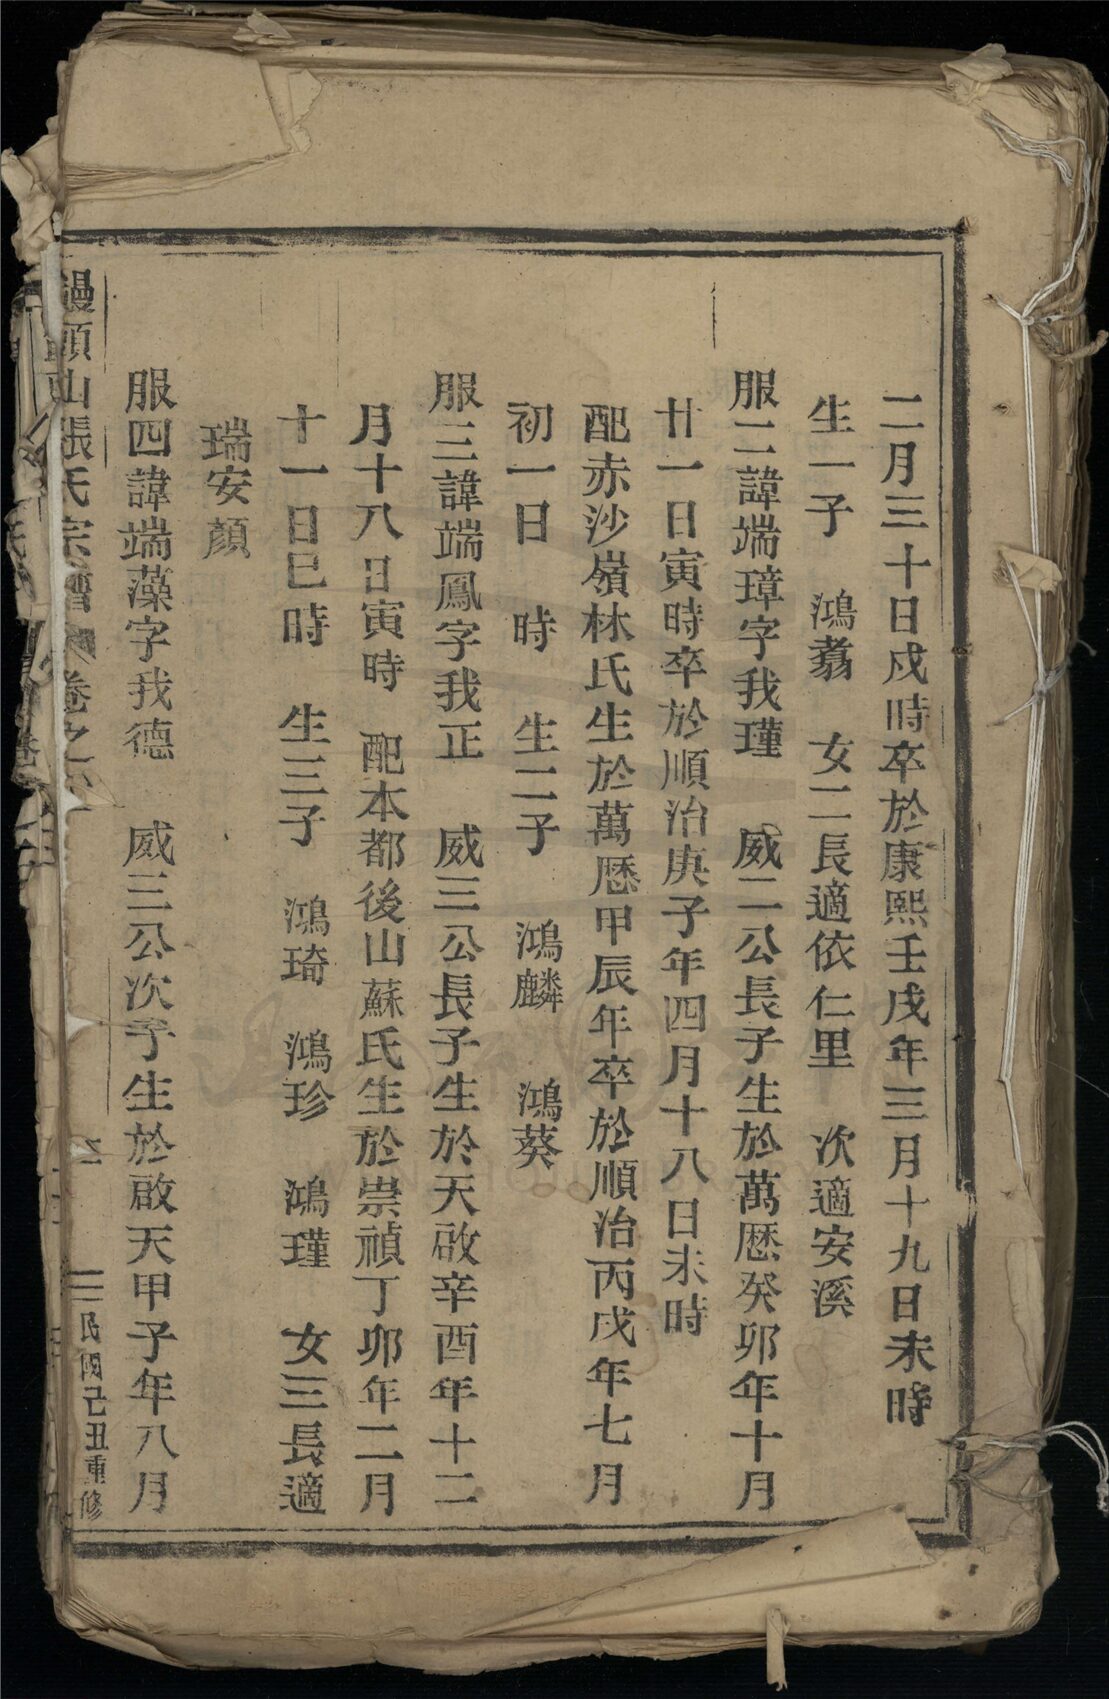 二月三十日戍時卒於康熙壬戌年三月十九日未時
生一子 鴻翥 女二長適依仁里 次適安溪
服二諱端璋字我瑾 威二公長子生於萬歷癸卯年十月
廿一日寅時卒於順治庚子年四月十八日未時
配赤沙嶺林氏生於萬歷甲辰年卒於順治丙戌年七月
初一日 時 生二子 鴻麟 鴻葵
服三諱端鳳字我正 威三公長子生於天啟辛酉年十二
月十八日寅時 配本都後山蘇氏生於崇禎丁卯年二月
十一日巳時 生三子 鴻琦 鴻珍 鴻瑾 女三長適
瑞安顏
服四諱端藻字我德 威三公次子生於啟天甲子年八月
頭山張氏宗譜 卷之 民國己丑重修
WENZHOU LIBRARY